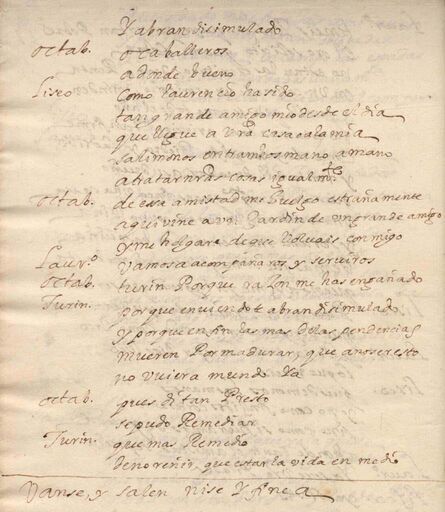 Y abran disimulado
octab. o caballeros
adonde bueno
Liseo como laurencio ha sido
tan grande amigo mio desde el dia
que llegue a vrã casa o a la mia
salimonos entrambos mano a mano
a tratar nrãs cosas igualmte
octab. de esa amistad me huelgo estrañamente
aqui vine a vn Jardin de vn grande amigo
y me holgara de que voluais conmigo
Laur.º Vamos a acompañaros y seruiros
octab. turin Porque raçon me has engañado
Turin. porque en viendote abran disimulado
y porque en fin las mas de las pendencias
mueren Por madurar, que a no ser esto
no vuiera mundo ya
octab. pues di tan Presto
se pudo Remediar
Turin. que mas Remedio
de no reñir, que estar la vida en medio
Vanse, y salen nise y finea